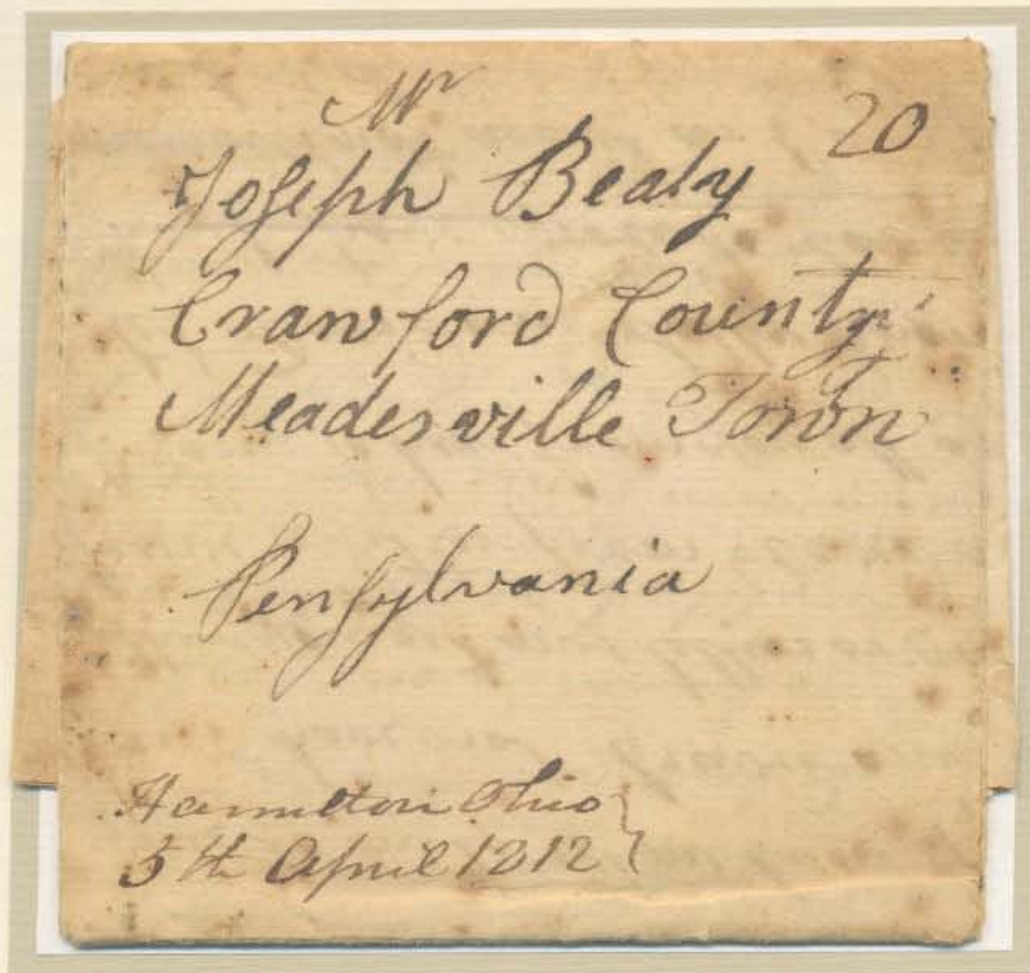 Mr 20
Joseph Bealy
Crawford County
Meadesville Town
Pensylvania
Hamilton Ohio
5th April 1812